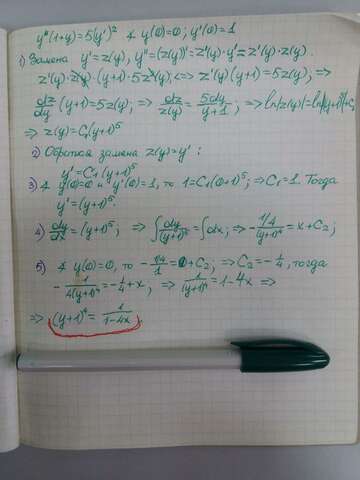 y"(1+y) = 5(y')² ; y(0)=0; y'(0)=1
1) Замена y'=z(y), y"=(z(y))'=z'(y)·y'=z'(y)·z(y).
z'(y)·z(y)·(y+1)=5z²(y); <=> z'(y)(y+1)=5z(y); =>
dz/dy (y+1)=5z(y); => dz/z(y) = 5dy/y+1; => ln|z(y)|=ln|(y+1)⁵|+C₁
=> z(y)=C₁(y+1)⁵
2) Обратная замена z(y)=y':
y'=C₁(y+1)⁵
3) y(0)=0 и y'(0)=1, то 1=C₁(0+1)⁵; => C₁=1. Тогда
y'=(y+1)⁵.
4) dy/dx=(y+1)⁵; => ∫dy/(y+1)⁵=∫dx; => -1/4/(y+1)⁴=x+C₂;
5) y(0)=0, то -1/4/1=0+C₂; => C₂=-1/4, тогда
-1/4(y+1)⁴=-1/4+x; => 1/(y+1)⁴=1-4x =>
=> (y+1)⁴=1/1-4x.